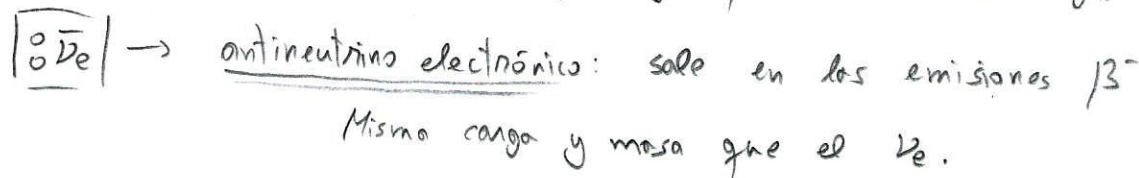 ⁰₀ν̄e → antineutrino electrónico: sale en las emisiones β⁻
Misma carga y masa que el νe.